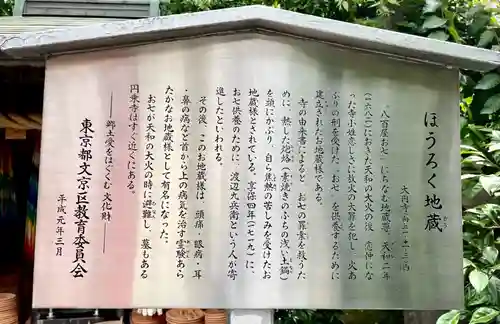 ほうろく地蔵
大円寺向丘一ー十一ー三
“八百屋お七”にちなむ地蔵尊。天和二年
(一六八二)におきた天和の大火の後、恋仲にな
った寺小姓恋しさに放火の大罪を犯し、火あ
ぶりの刑を受けた“お七”を供養するために
建立されたお地蔵様である。
寺の由来書によると、お七の罪業を救うた
めに、熱した炮烙(素焼きのふちの浅い土鍋)
を頭にかぶり、自ら焦熱の苦しみを受けたお
地蔵様とされている。享保四年(一七一九)に、
お七供養のために、渡辺九兵衛という人が寄
進したといわれる。
その後、このお地蔵様は、頭痛・眼病・耳
・鼻の病など首から上の病気を治す霊験あら
たかなお地蔵様として有名になった。
お七が天和の大火の時に避難し、墓もある
円乗寺はすぐ近くにある。
―郷土愛をはぐくむ文化財―
東京都文京区教育委員会
平成元年三月